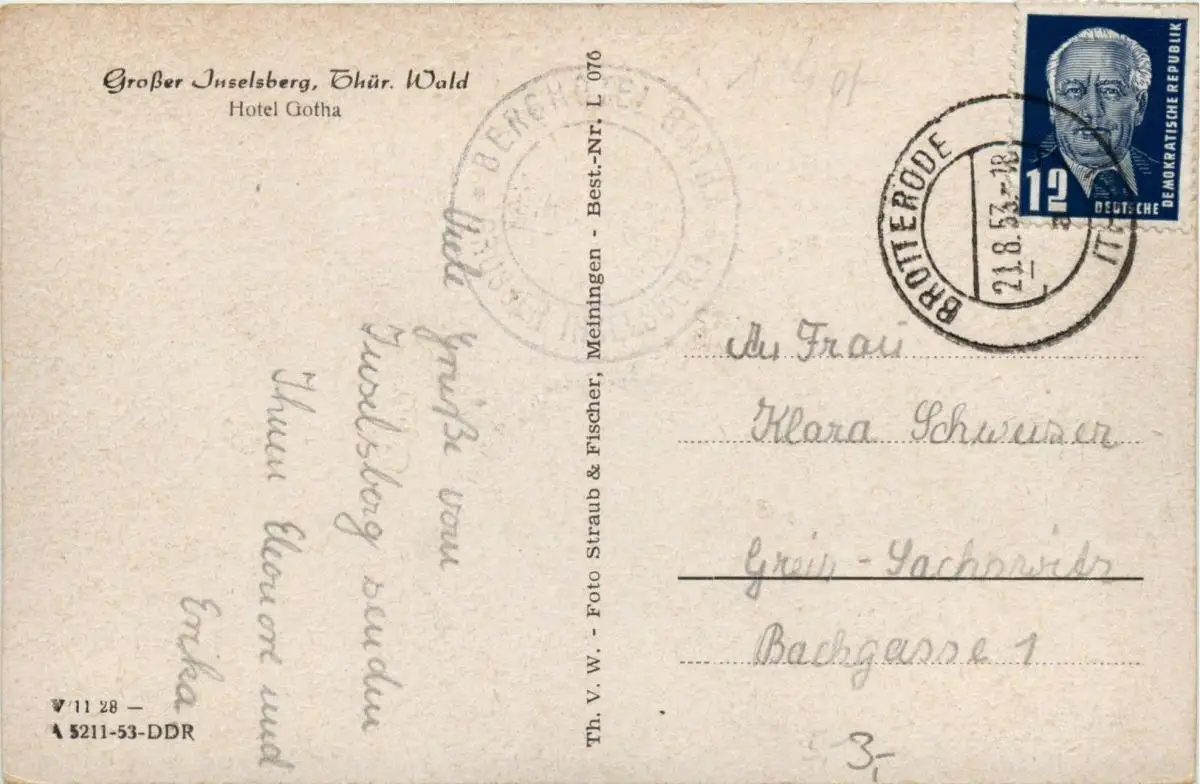 Großer Inselsberg, Thür. Wald
Hotel Gotha
BERGHOTEL GOTHA
GROSSER INSELSBERG
Viele
Grüße vom
Inselsberg senden
Ihnen Eleonore und
Erika
V 11 28 —
A 5211-53-DDR
Th. V. W. - Foto Straub & Fischer, Meiningen - Best.-Nr. L 076
12
DEUTSCHE
DEMOKRATISCHE REPUBLIK
BROTTERODE
21.8.53.-18
An Frau
Klara Schweizer
Greiz-
Bachgasse 1
3,-